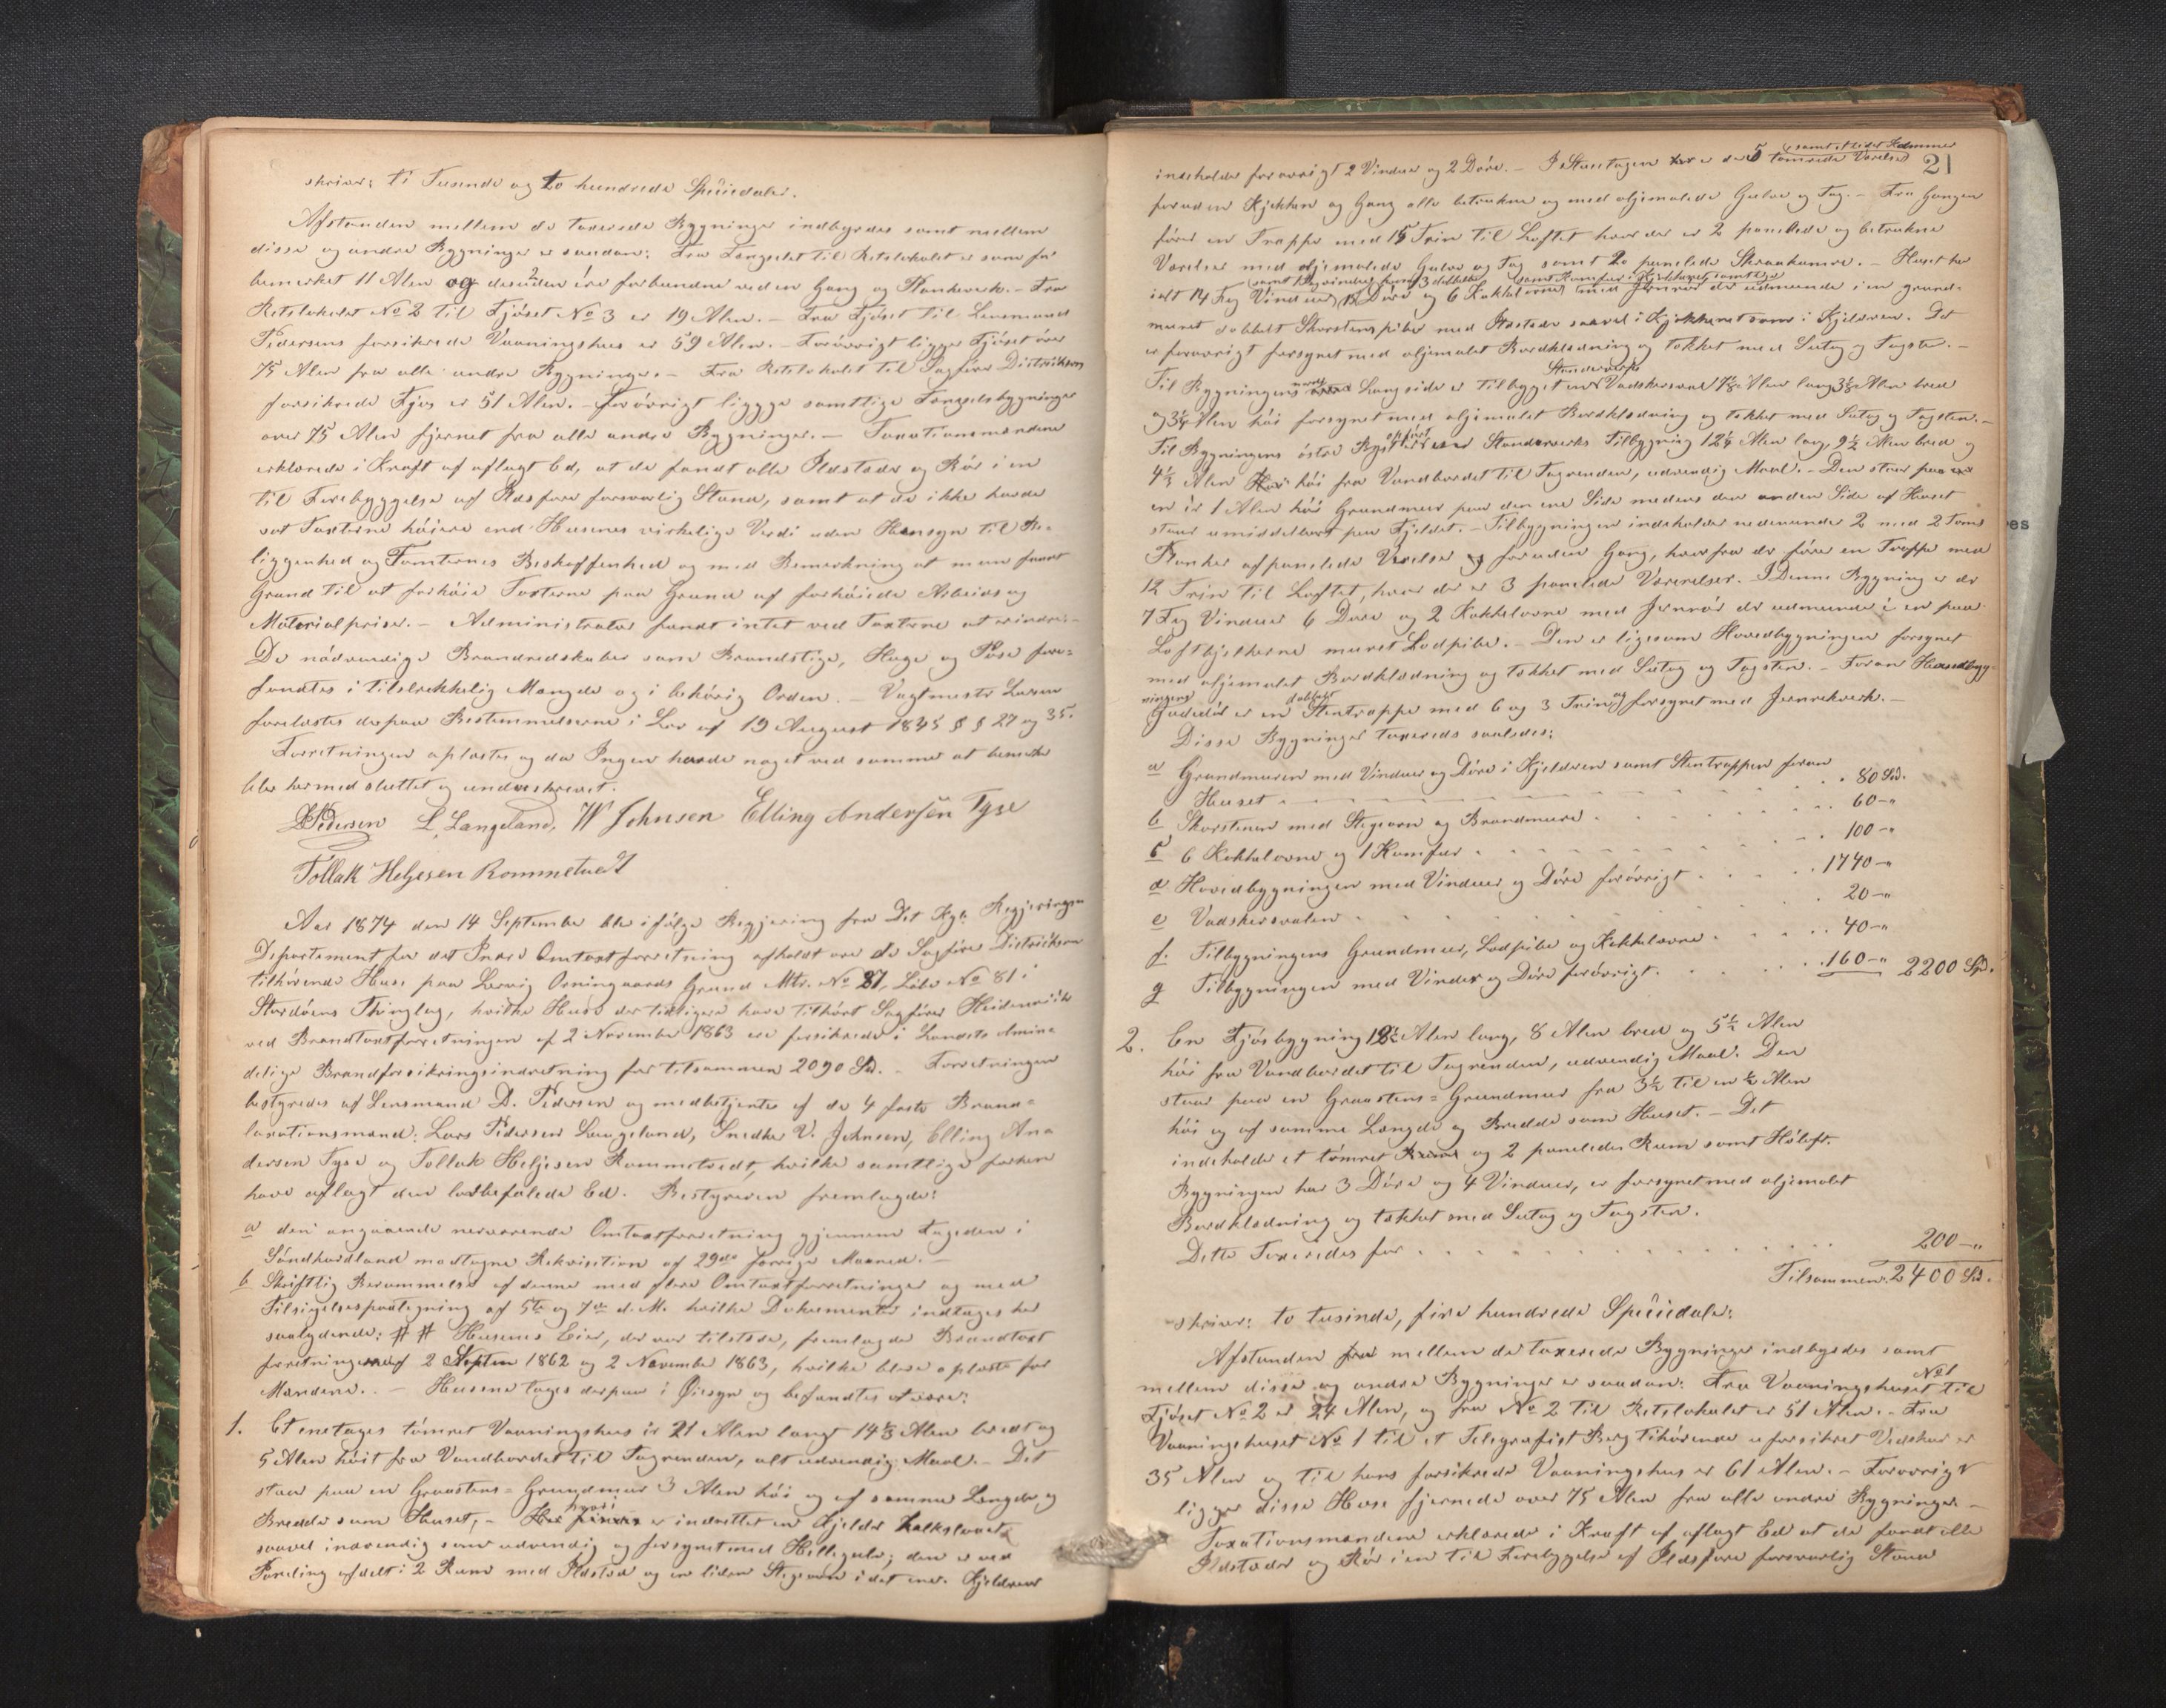 skriver: ti Tusende og to hundrede Speciedaler.
Afstanden mellem de taxerede Bygninger indbyrdes samt mellem
disse og andre Bygninger er saadan: Fra Fængslet til Retslokalet er som før
bemerket 11 Alen og desuden ere 2 forbundne ved en Gang og Plankeverk. – Fra
Retslokalet No 2 til Fjöset No 3 er 19 Alen. – Fra Fjöset til Lensmand
Pedersens forsikrede Vaaningshus er 59 Alen. – Forövrigt ligger Fjöset over
75 Alen fra alle andre Bygninger. – Fra Retslokalet til Sagförer Didriksen
forsikrede Fjös er 51 Alen. – Forövrigt ligger samtlige Fængselsbygninger
over 75 Alen fjernet fra alle andre Bygninger. – Taxationsmændene
erklærede i Kraft af aflagt Ed, at de fandt alle Ildsteder og Rör i en
til Forebyggelse af Ildsfare forsvarlig Stand, samt at de ikke havde
sat Taxterne höiere end Husenes virkelige Verdi uden Hensyn til Be-
liggenhed og Tomternes Beskaffenhed og med Bemerkning at man fandt
Grund til at forhöie Taxterne paa Grund af forhöiede Arbeids og
Materialpriser. – Administrator fandt intet ved Taxterne at erindre. –
De nödvendige Brandredskaber som Brandstige, Hage og Pöse fore-
fandtes i tilstrækkelig Mængde og i behörig Orden. – Vagtmester Larsen
forelæstes derpaa Bestemmelserne i Lov af 19 August 1845 § § 27 og 35.
Forretningen oplæstes og da Ingen havde noget ved samme at bemerke
blev hermed sluttet og underskrevet.
D Pedersen L. Langeland, W Johnsen Elling Andersen Tyse
Tollak Helgesen Rommetvedt
Aar 1874 den 14 September blev ifölge Begjering fra Det Kgl. Regjerings
Departement for det Indre Omtaxtforretning afholdt over de Sagförer Didriksen
tilhörende Huse paa Lervig Orningaards Grund Mtr. No 27, Löbe No 81 i
Stordöens Thinglag, hvilke Huse der tidligere have tilhört Sagförer Heidenreich
ved Brandtaxtforretningen af 2 November 1863 ere forsikrede i Landets Almin-
delige Brandforsikringsindretning for tilsammen 2090 Spd. – Forretningen
bestyredes af Lensmand D. Pedersen og medbetjentes af de 4 faste Brand-
taxationsmænd: Lars Pedersen Langeland, Snedker V. Johnsen, Elling An-
dersen Tyse og Tollak Heljesen Rommetvedt, hvilke samtlige forhen
have aflagt den lovbefalede Ed. Bestyreren fremlagde:
a den angaaende nærværende Omtaxtforretning gjennem Fogeden i
Söndhordland modtagne Rekvisition af 29de forrige Maaned. –
b Skriftlig Berammelse af denne med flere Omtaxtforretninger og med
Tilsigelsespaategning af 5te og 7de d. M. hvilke Dokumenter indtages her
saalydende: # # Husenes Eier, der var tilstede, fremlagde Brandtaxt
forretninger af 2 Septem 1862 og 2 November 1863, hvilke bleve oplæste for
Mændene. – Husene toges derpaa i Öiesyn og befandtes at være:
1. Et enetages tömret Vaaningshus er 21 Alen langt 14⅓ Alen bredt og
5 Alen höit fra Vandbordet til Tagrenden, alt udvendig Maal. – Det
staar paa en Graastens-Grundmur 3 Alen höi og af samme Længde og
Bredde som Huset, – hvori er indrettet en Kjelder kalkslaaet
saavel indvendig som udvendig og forsynet med Hellegulv; den er ved
Paneling afdelt i 2 Rum med Ildsted og en liden Stegeovn i det ene. Kjelderen
21
indeholder forövrigt 2 Vinduer og 2 Döre. – I Stueetagen er der 5 tömrede Værelser samt et lidet Kammer
foruden Kjökken og Gang alle betrukne og med oljemalede Gulve og Tag. – Fra Gangen
förer en Trappe med 15 Trin til Loftet hvor der er 2 panelede og betrukne
Værelser med oljemalede Gulve og Tag samt 2 panelede Skraakamre. – Huset har
ialt 14 Fag Vinduer, Döre og 6 Kakkelovne med Jernrör der udmunde i en grund-
muret dobbelt Skorstenspibe med Ildsteder saavel i Kjökkenet som i Kjelderen. Det
er forövrigt forsynet med oljemalet Bordklædning og tækket med Sutag og Tagsten. –
Til Bygningens nordre Langside er tilbygget en Stenderverks Vadskersval 7⅛ Alen lang 3⅛ Alen bred
og 3¼ Alen höi forsynet med oljemalet Bordklædning og tækket med Sutag og Tagsten. –
Til Bygningens östre er opfört en Stenderverks Tilbygning 12¼ Alen lang, 9½ Alen bred og
4⅓ Alen höi fra Vandbordet til Tagrenden, udvendig Maal. – Den staar paa
en ir 1 Alen höi Grundmur paa den ene Side medens den anden Side af Huset
staar umiddelbart paa Fjeldet. – Tilbygningen indeholder nedenunder 2 med 2 Toms
Planker afpanelede Værelser foruden Gang, hvorfra der förer en Trappe med
12 Trin til Loftet, hvor der er 3 panelede Værerelser. I Denne Bygning er der
7 Fag Vinduer 6 Döre og 2 Kakkelovne med Jernrör der udmunde i en paa
Loftbjelkerne muret Lodpibe. – Den er ligesom Hovedbygningen forsynet
med oljemalet Bordklædning og tækket med Sutag og Tagsten. – Foran Hovedbyg-
ningens Gadedör er en dobbelt Stentrappe med 6 og 3 Trin og forsynet med Jernrekverk. –
Disse Bygninger taxeredes saaledes:
a Grundmuren med Vinduer og Döre i Kjelderen samt Stentrappen foran
Huset . . . 80 Spd.
b Skorstenen med Stegeovn og Brandmure . . . 60 – "
c 6 Kakkelovne og 1 Komfur . . . 100 – "
d Hovedbygningen med Vinduer og Döre forövrigt . . . 1740 – "
e Vadskersvalen . . . 20 – "
f. Tilbygningens Grundmur, Lodpibe og Kakkelovne . . . 40 – "
g Tilbygningen med Vinduer og Döre forövrigt . . . 160 – " 2200 Spd.
2. En Fjösbygning 12½ Alen lang, 8 Alen bred og 5½ Alen
höi fra Vandbordet til Tagrenden, udvendig Maal. Den
staar paa en Graastens-Grundmur fra 3½ til en ½ Alen
höi og af samme Længde og Bredde som Huset. – Det
indeholder et tömret Rum og 2 panelede Rum samt Höloft.
Bygningen har 3 Döre og 4 Vinduer, er forsynet med oljemalet
Bordklædning og tækket med Sutag og Tagsten.
Dette Taxeredes for . . . 200 – "
Tilsammen: 2400 Spd.
skriver: to tusinde, fire hundrede Speciedaler.
Afstanden mellem de taxerede Bygninger indbyrdes samt
mellem disse og andre Bygninger er saadan: Fra Vaaningshuset No 1 til
Fjöset No 2 er 24 Alen, og fra No 2 til Retslokalet er 51 Alen. – Fra
Vaaningshuset No 1 til et Telegrafist Berg tilhörende uforsikret Vedskur er
35 Alen og til hans forsikrede Vaaningshus er 61 Alen. – Forövrigt
ligger disse Huse fjernede over 75 Alen fra alle andre Bygninger. –
Taxationsmændene erklærede i Kraft af aflagt Ed at de fandt alle
Ildsteder og Rör i en til Forebyggelse af Ildsfare forsvarlig Stand